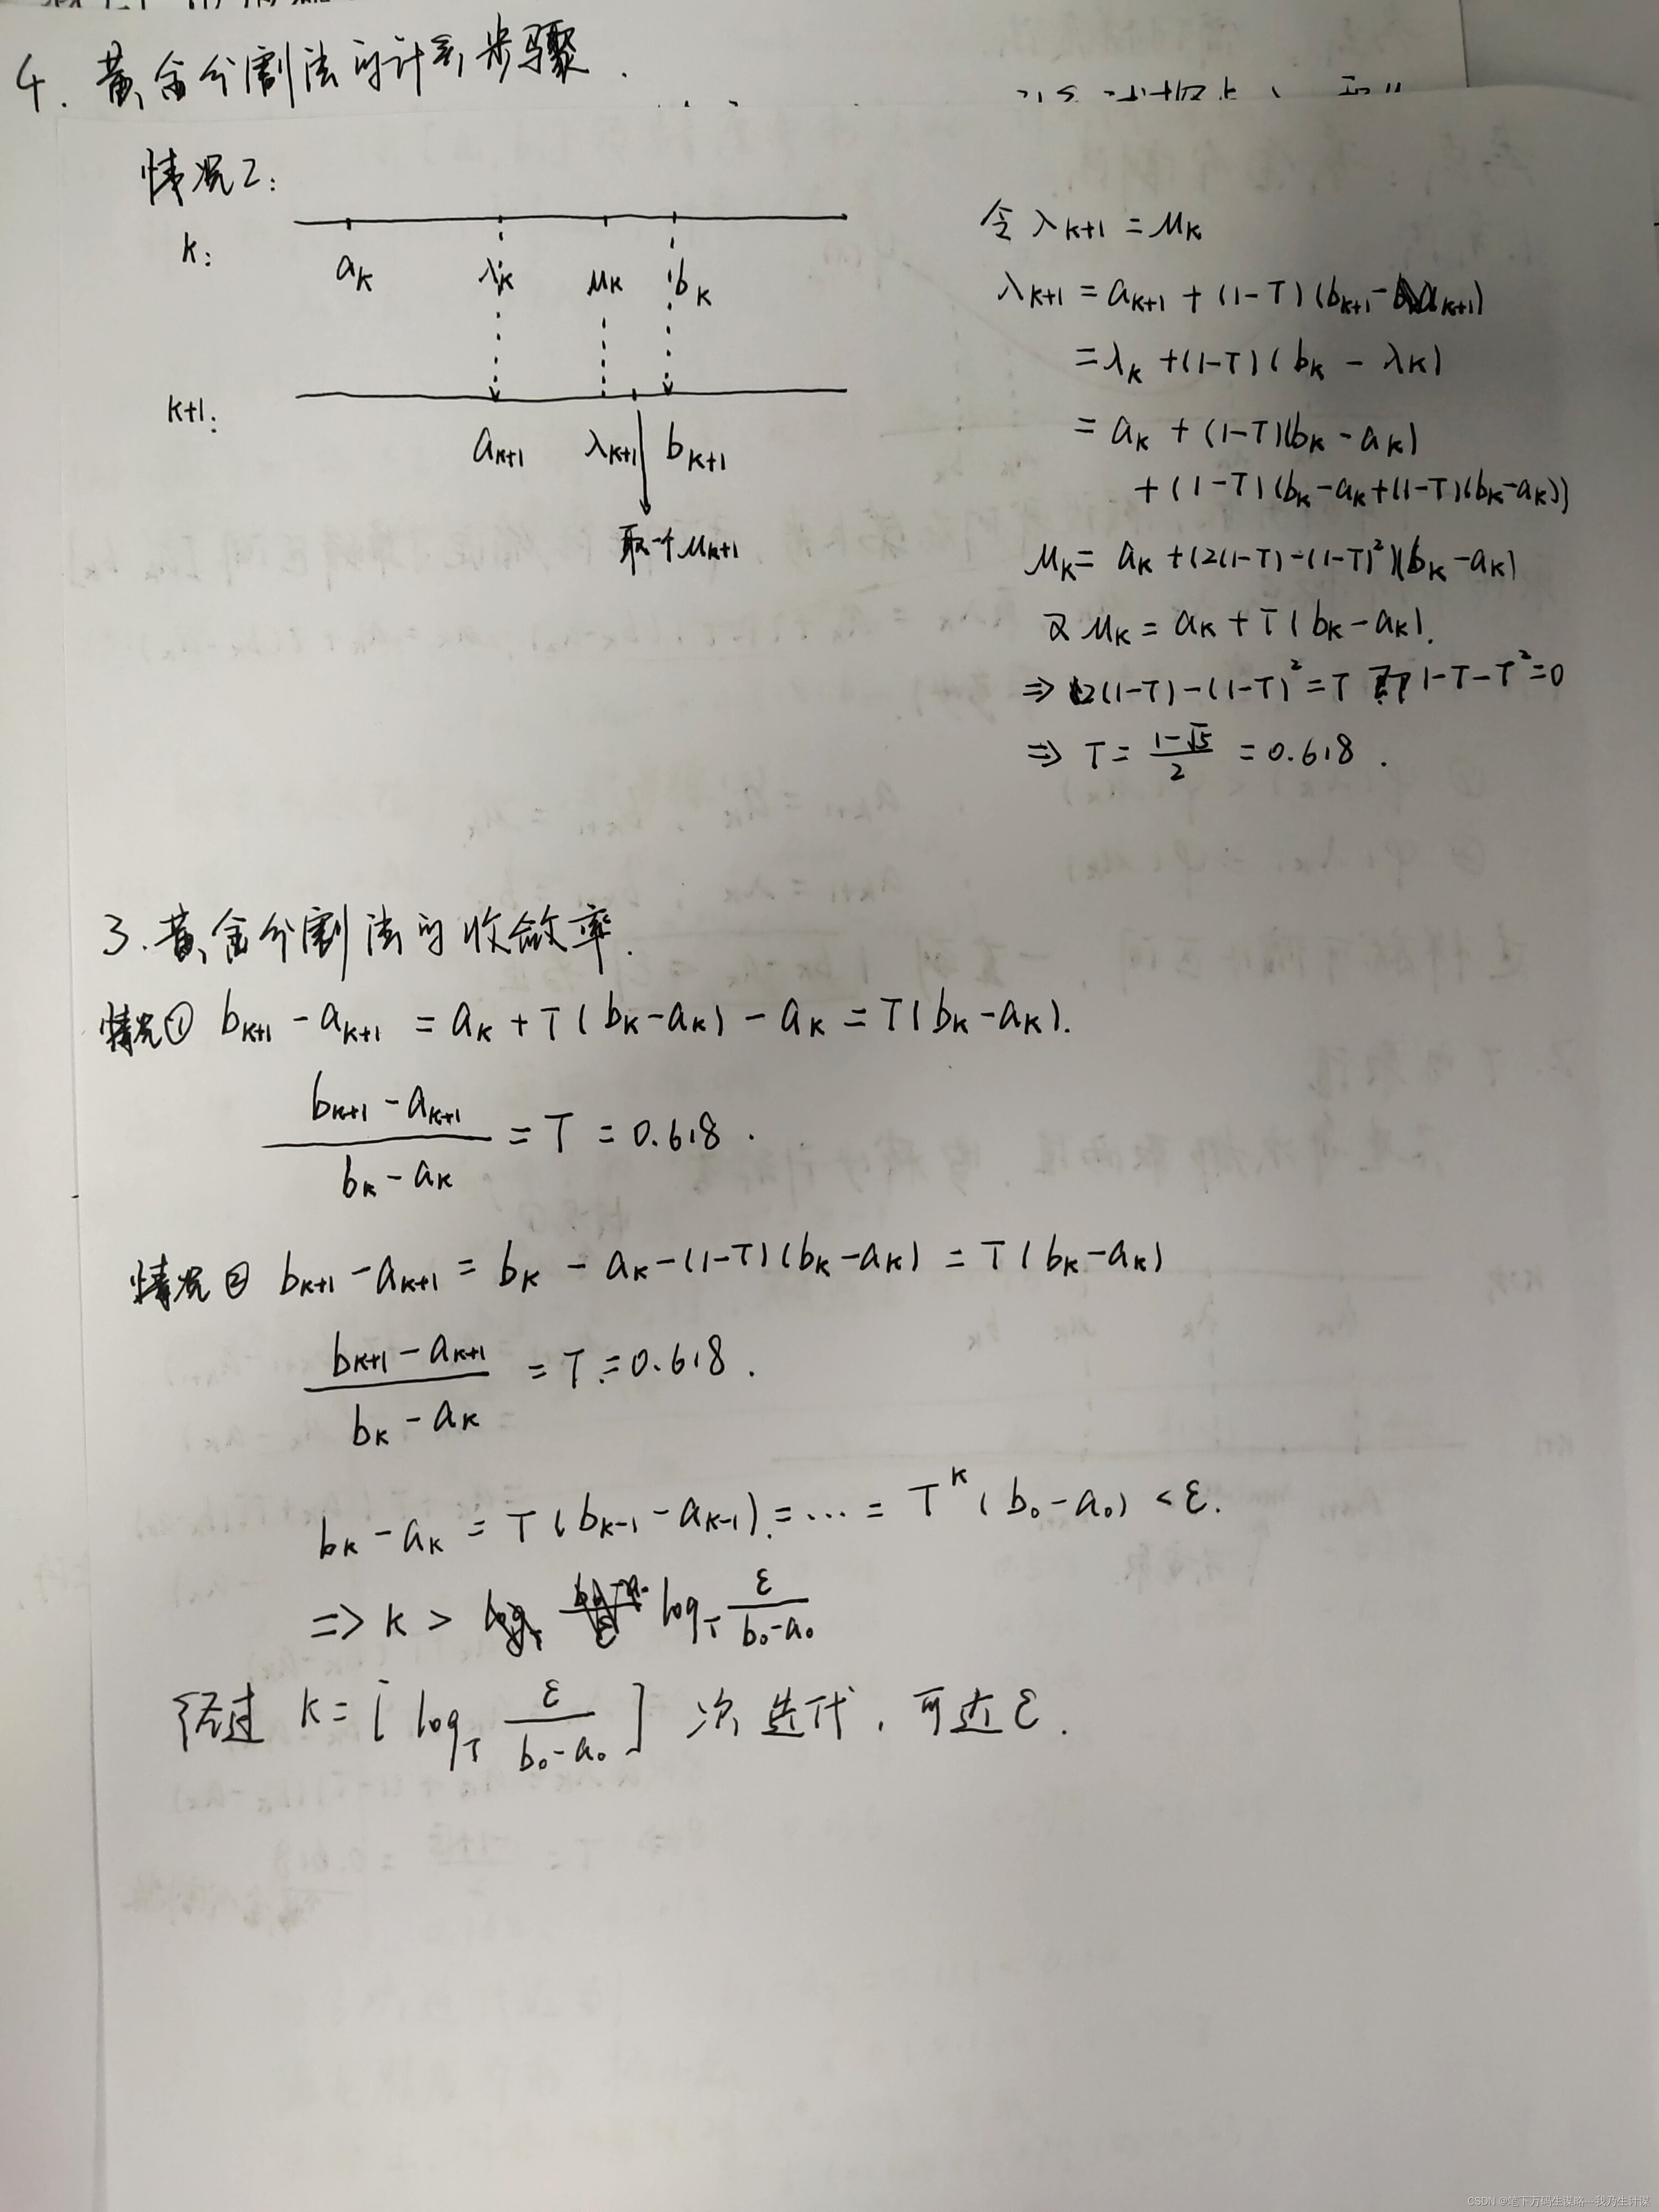 4. 黄金分割法的计算步骤.
情况2:
k:
aₖ λₖ μₖ bₖ
k+1:
aₖ₊₁ λₖ₊₁ bₖ₊₁
取一个μₖ₊₁
令 λₖ₊₁ = μₖ
λₖ₊₁ = aₖ₊₁ + (1-T)(bₖ₊₁-aₖ₊₁)
= λₖ +(1-T)(bₖ - λₖ)
= aₖ + (1-T)(bₖ-aₖ)
+ (1-T)(bₖ-aₖ+(1-T)(bₖ-aₖ))
μₖ= aₖ +(2(1-T)-(1-T)²)(bₖ-aₖ)
又 μₖ = aₖ+T(bₖ-aₖ).
⇒ 2(1-T)-(1-T)²=T 即 1-T-T²=0
⇒ T= (1-√5)/2 = 0.618 .
3. 黄金分割法的收敛率.
情况① bₖ₊₁ - aₖ₊₁ = aₖ + T(bₖ-aₖ) - aₖ = T(bₖ-aₖ).
(bₖ₊₁-aₖ₊₁)/(bₖ-aₖ) = T = 0.618 .
情况② bₖ₊₁-aₖ₊₁ = bₖ - aₖ-(1-T)(bₖ-aₖ) = T(bₖ-aₖ)
(bₖ₊₁-aₖ₊₁)/(bₖ-aₖ) = T = 0.618 .
bₖ-aₖ = T(bₖ₋₁-aₖ₋₁) = ... = Tᵏ(b₀-a₀) < ε.
⇒ k > log_T ε/(b₀-a₀)
经过 k=[log_T ε/(b₀-a₀)] 次迭代, 可达ε.
CSDN @笔下万码生谋略---我乃生计谋